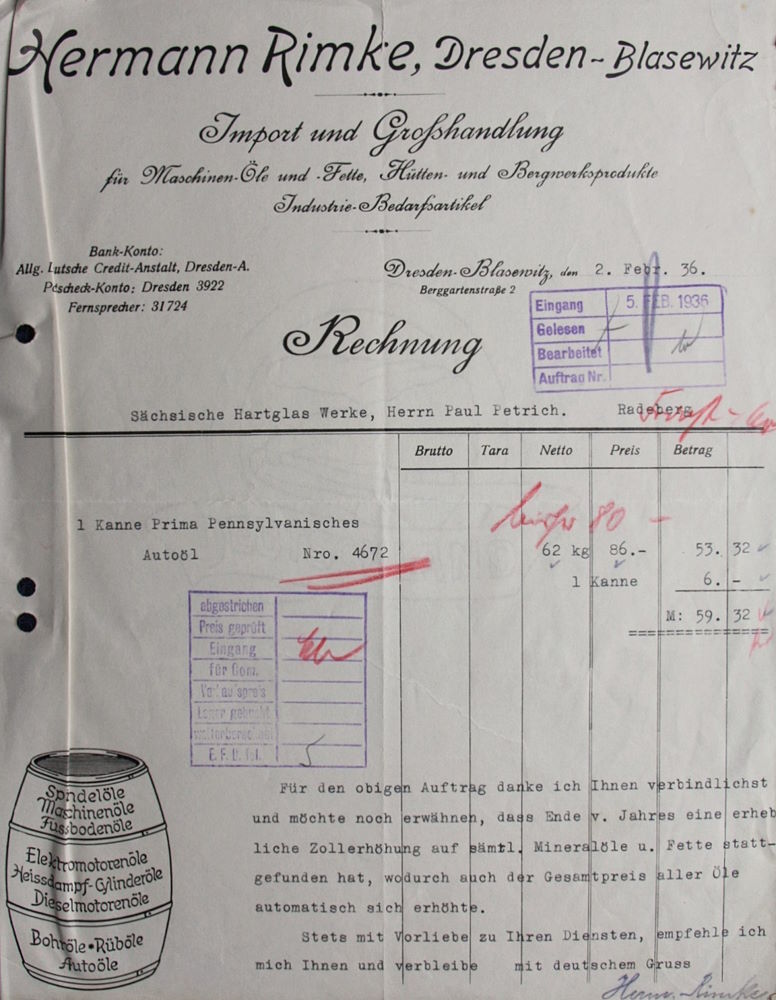 Hermann Rimke, Dresden-Blasewitz
Import und Großhandlung
für Maschinen-Öle und -Fette, Hütten- und Bergwerksprodukte
Industrie-Bedarfsartikel
Bank-Konto:
Allg. Lutsche Credit-Anstalt, Dresden-A.
Pcscheck-Konto: Dresden 3922
Fernsprecher: 31724
Dresden-Blasewitz, den 2. Febr. 36.
Berggartenstraße 2
Eingang 5. FEB. 1936
Gelesen
Bearbeitet
Auftrag Nr.
Rechnung
Sächsische Hartglas Werke, Herrn Paul Petrich. Radeberg
Brutto Tara Netto Preis Betrag
80 -
1 Kanne Prima Pennsylvanisches
Autoöl Nro. 4672 62 kg 86.- 53. 32
1 Kanne 6. -
M: 59. 32
abgestrichen
Preis geprüft
Eingang
für Com.
E. F. B. fol.
Spndelöle
Maschinenöle
Fussbodenöle
Elektromotorenöle
Heissdampf-Cylinderöle
Dieselmotorenöle
Bohröle • Rüböle
Autoöle
Für den obigen Auftrag danke ich Ihnen verbindlichst
und möchte noch erwähnen, dass Ende v. Jahres eine erheb
liche Zollerhöhung auf sämtl. Mineralöle u. Fette statt-
gefunden hat, wodurch auch der Gesamtpreis aller Öle
automatisch sich erhöhte.
Stets mit Vorliebe zu Ihren Diensten, empfehle ich
mich Ihnen und verbleibe mit deutschem Gruss
Herm. Rimke